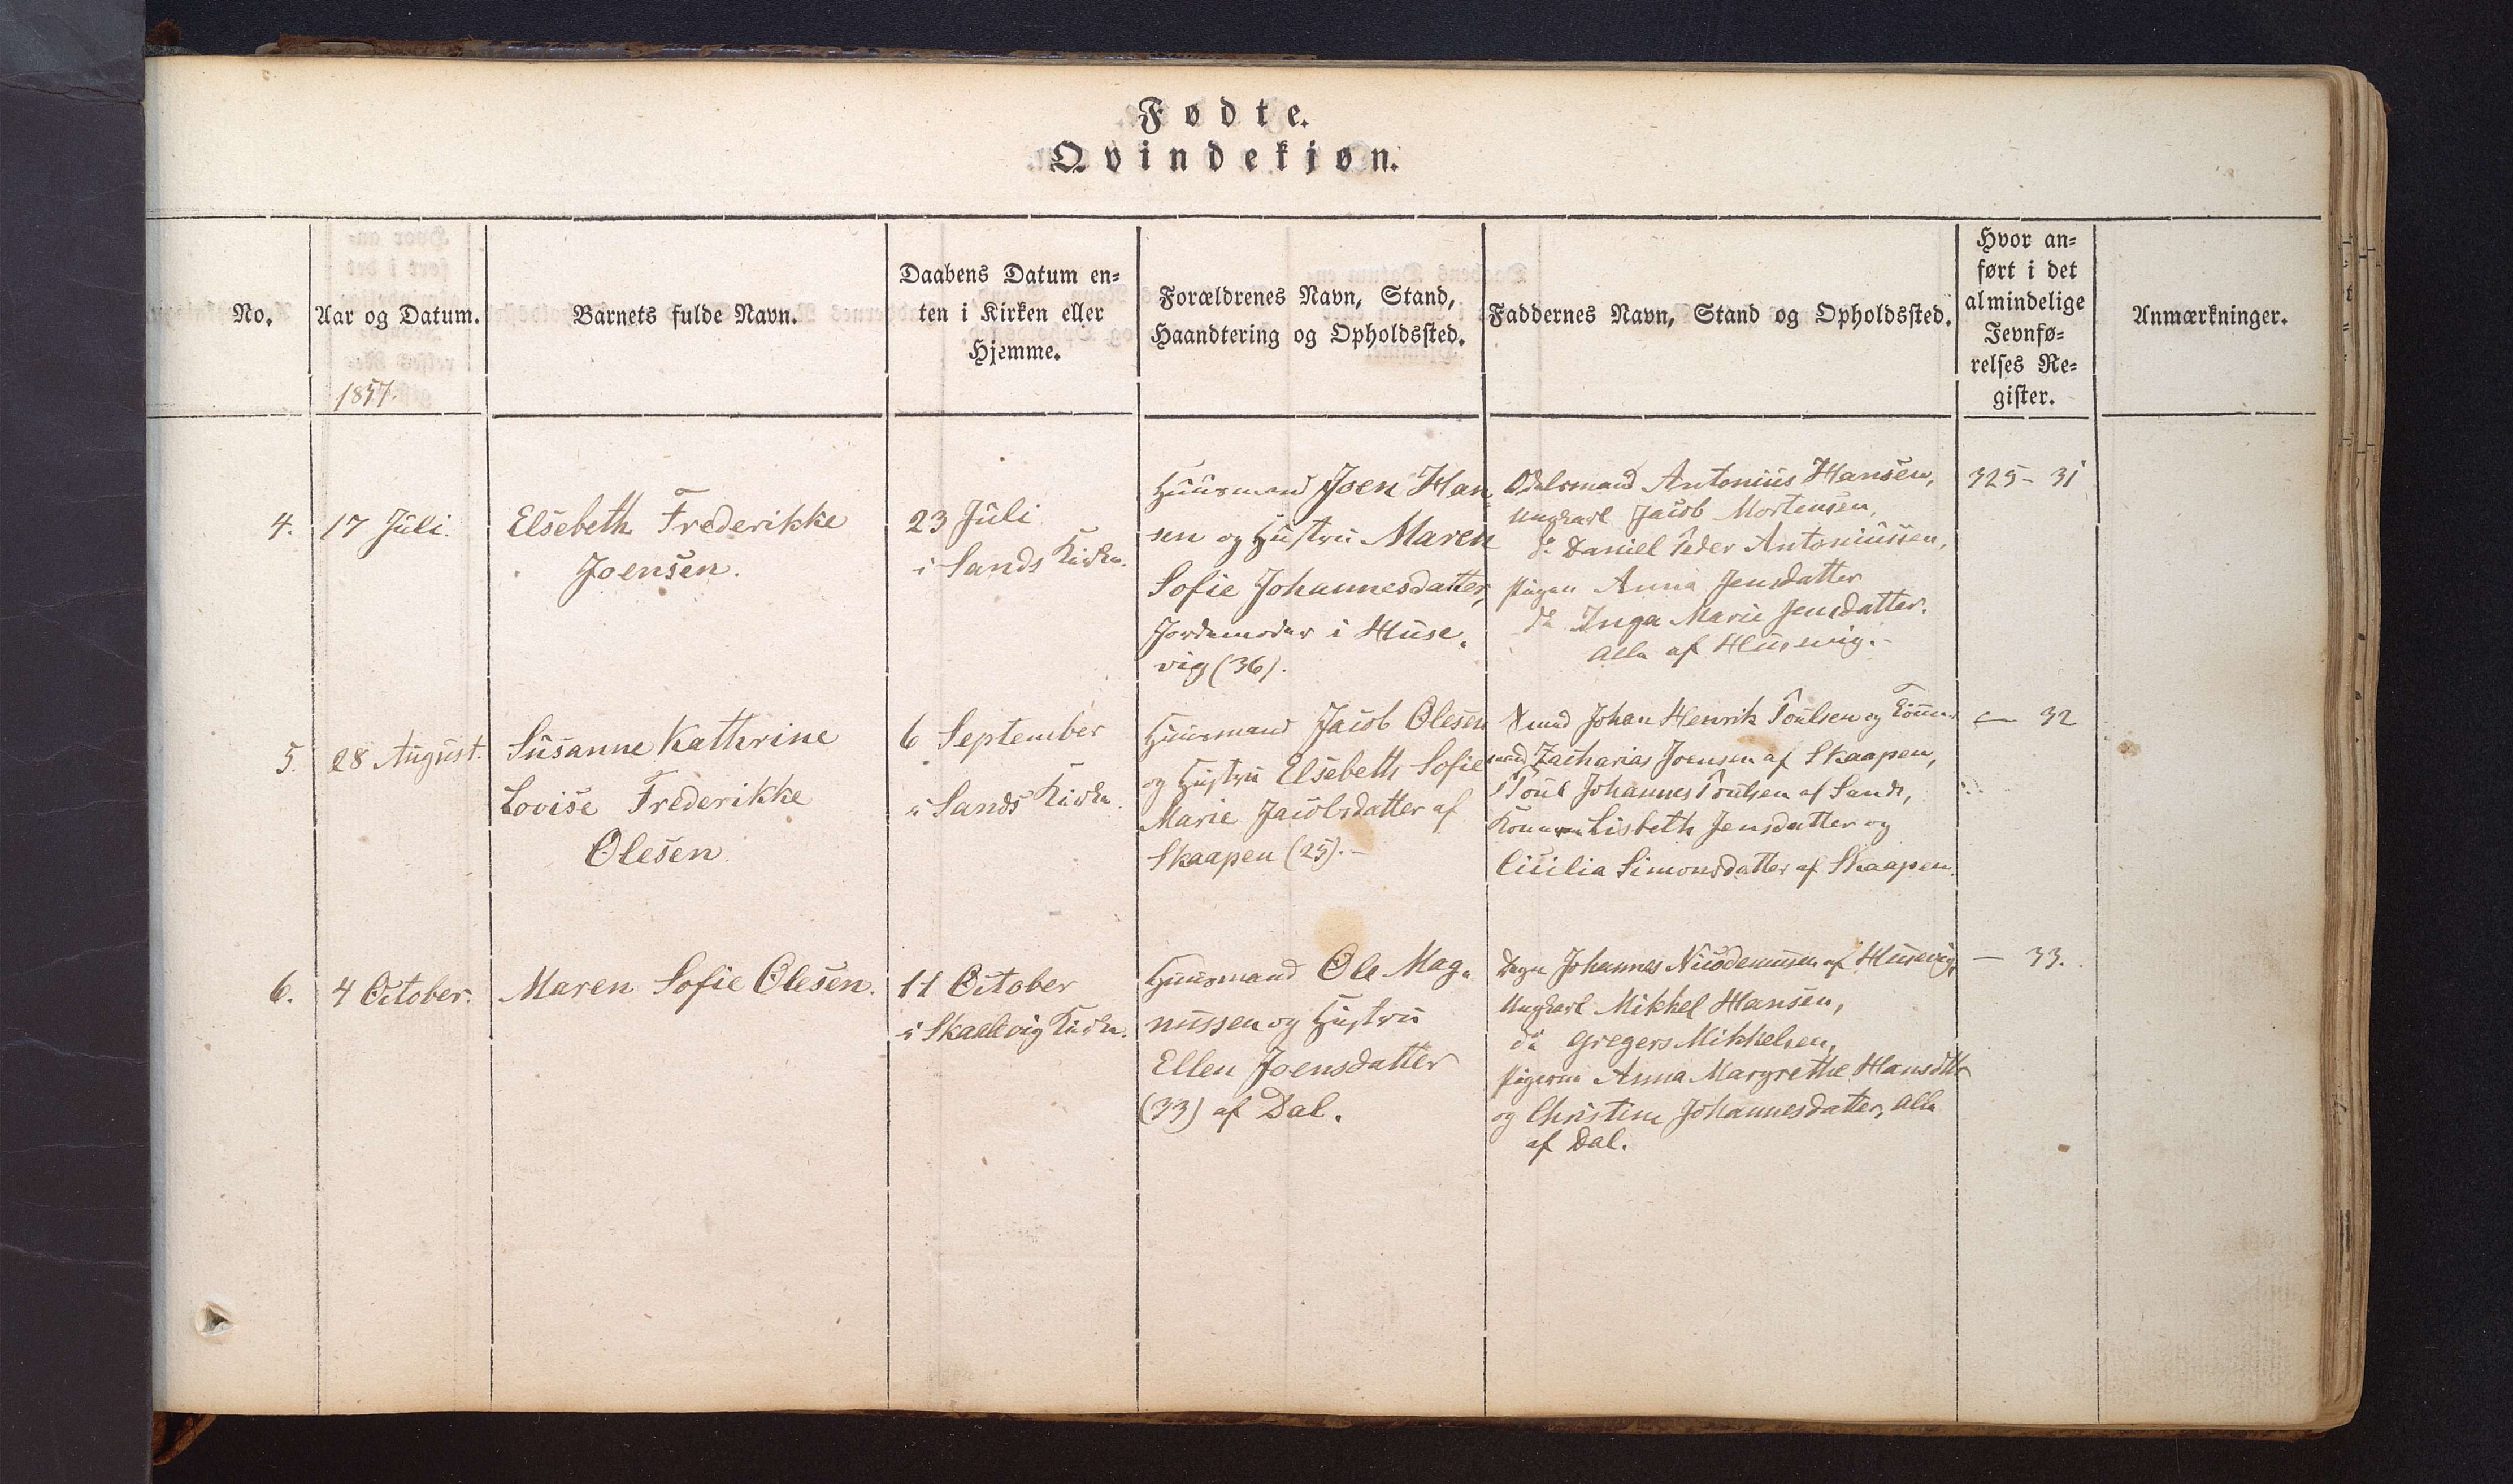 Fødte.
Qvindekjøn.
No.
Aar og Datum.
1857.
Barnets fulde Navn.
Daabens Datum en=
ten i Kirken eller
Hjemme.
Forældrenes Navn, Stand,
Haandtering og Opholdssted.
Faddernes Navn, Stand og Opholdssted.
Hvor an=
ført i det
almindelige
Jevnfø=
relses Re=
gister.
Anmærkninger.
4.
17 Juli.
Elsebeth Frederikke
Joensen.
23 Juli
i Sands Kirke.
Huusmand Joen Han
sen og Hustru Maren
Sofie Johannesdatter,
Jordemoder i Huse
vig (36).
Odelsmand Antonius Hansen,
Ungkarl Jacob Mortensen,
do Daniel Peder Antoniussen,
Pigen Anna Jensdatter
do Inga Marie Jensdatter.
alle af Husevig.
325 - 31
5.
28 August.
Susanne Kathrine
Lovise Frederikke
Olesen
6 September
i Sands Kirke.
Huusmand Jacob Olesen
og Hustru Elsebeth Sofie
Marie Jacobsdatter af
Skaapen (25).
Johan Henrik Poulsen og
Zacharias Joensen af Skaapen,
Johannes Poulsen af Sand,
Lisbeth Jensdatter og
Cicilia Simonsdatter af Skaapen.
— 32
6.
4 October.
Maren Sofie Olesen.
11 October
i Skaalevig Kirke.
Huusmand Ole Mag
nussen og Hustru
Ellen Joensdatter
(33) af Dal.
Johannes Nicodemussen af Husevig,
Ungkarl Mikkel Hansen,
do Gregers Mikkelsen,
Pigerne Anna Margrethe Hansdtr
og Christine Johannesdatter, alle
af Dal.
— 33.